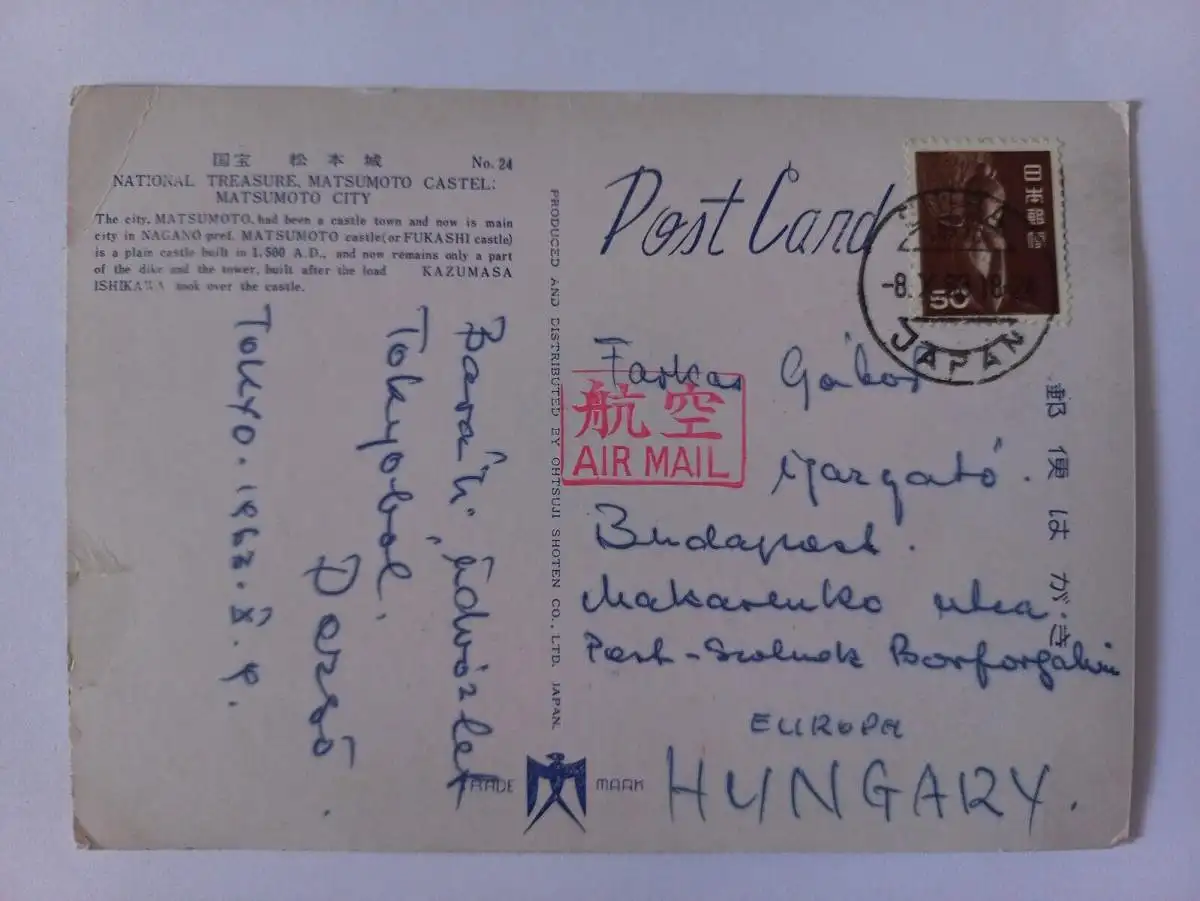 国宝 松本城 No. 24
NATIONAL TREASURE, MATSUMOTO CASTEL:
MATSUMOTO CITY
The city, MATSUMOTO, had been a castle town and now is main
city in NAGANO pref. MATSUMOTO castle(or FUKASHI castle)
is a plain castle built in 1,500 A.D., and now remains only a part
of the dike and the tower, built after the load KAZUMASA
ISHIKAWA took over the castle.
Baráti üdvözlet
Tokyoból.
Dezső.
TOKYO. 1962. X. 8.
PRODUCED AND DISTRIBUTED BY OHTSUJI SHOTEN CO., LTD. JAPAN.
TRADE MARK
Post Card
日本郵便
50
-8. 18-24
JAPAN
航空
AIR MAIL
Farkas Gábor
igazgató.
Budapest.
Makarenko utca
Pest-Szolnok
EUROPA
HUNGARY.
郵便はがき